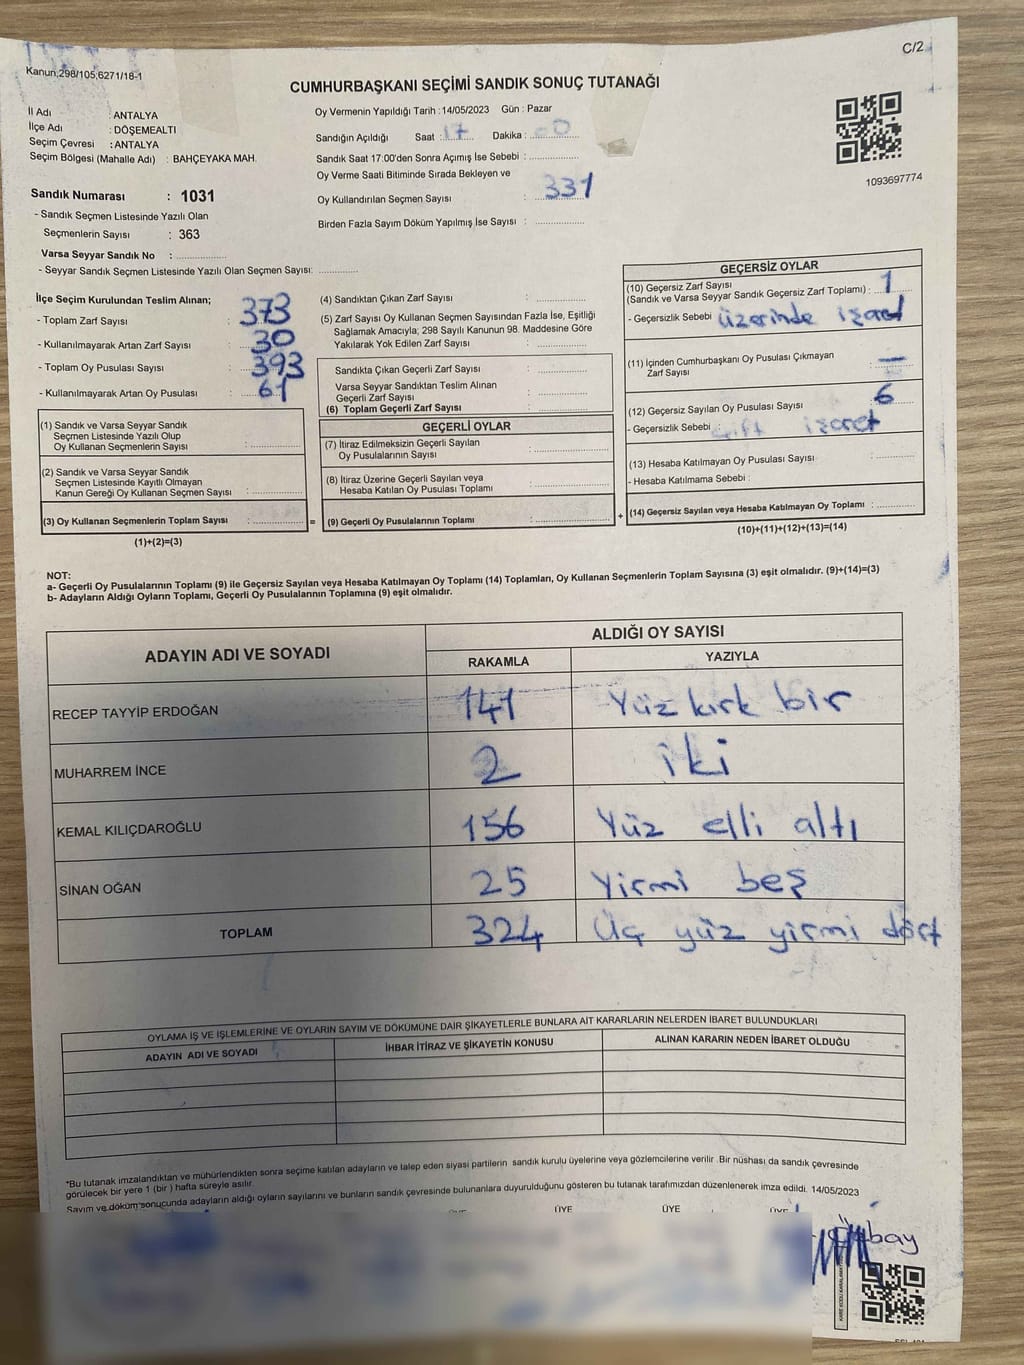 C/2
Kanun,298/105,6271/18-1
CUMHURBAŞKANI SEÇİMİ SANDIK SONUÇ TUTANAĞI
İl Adı : ANTALYA
İlçe Adı : DÖŞEMEALTI
Seçim Çevresi : ANTALYA
Seçim Bölgesi (Mahalle Adı) : BAHÇEYAKA MAH.
Sandık Numarası : 1031
- Sandık Seçmen Listesinde Yazılı Olan
Seçmenlerin Sayısı : 363
Varsa Seyyar Sandık No :
- Seyyar Sandık Seçmen Listesinde Yazılı Olan Seçmen Sayısı:
Oy Vermenin Yapıldığı Tarih :14/05/2023 Gün : Pazar
Sandığın Açıldığı Saat : 17 Dakika : 00
Sandık Saat 17:00'den Sonra Açımış İse Sebebi :
Oy Verme Saati Bitiminde Sırada Bekleyen ve
Oy Kullandırılan Seçmen Sayısı : 331
Birden Fazla Sayım Döküm Yapılmış İse Sayısı :
1093697774
İlçe Seçim Kurulundan Teslim Alınan;
- Toplam Zarf Sayısı : 373
- Kullanılmayarak Artan Zarf Sayısı : 30
- Toplam Oy Pusulası Sayısı : 393
- Kullanılmayarak Artan Oy Pusulası : 61
(1) Sandık ve Varsa Seyyar Sandık
Seçmen Listesinde Yazılı Olup
Oy Kullanan Seçmenlerin Sayısı :
(2) Sandık ve Varsa Seyyar Sandık
Seçmen Listesinde Kayıtlı Olmayan
Kanun Gereği Oy Kullanan Seçmen Sayısı :
(3) Oy Kullanan Seçmenlerin Toplam Sayısı :
(1)+(2)=(3)
=
(4) Sandıktan Çıkan Zarf Sayısı :
(5) Zarf Sayısı Oy Kullanan Seçmen Sayısından Fazla İse, Eşitliği
Sağlamak Amacıyla; 298 Sayılı Kanunun 98. Maddesine Göre
Yakılarak Yok Edilen Zarf Sayısı :
Sandıkta Çıkan Geçerli Zarf Sayısı :
Varsa Seyyar Sandıktan Teslim Alınan
Geçerli Zarf Sayısı :
(6) Toplam Geçerli Zarf Sayısı :
GEÇERLİ OYLAR
(7) İtiraz Edilmeksizin Geçerli Sayılan
Oy Pusulalarının Sayısı :
(8) İtiraz Üzerine Geçerli Sayılan veya
Hesaba Katılan Oy Pusulası Toplamı :
(9) Geçerli Oy Pusulalarının Toplamı :
+
GEÇERSİZ OYLAR
(10) Geçersiz Zarf Sayısı
(Sandık ve Varsa Seyyar Sandık Geçersiz Zarf Toplamı) : 1
- Geçersizlik Sebebi : üzerinde işaret
(11) İçinden Cumhurbaşkanı Oy Pusulası Çıkmayan
Zarf Sayısı : —
(12) Geçersiz Sayılan Oy Pusulası Sayısı : 6
- Geçersizlik Sebebi : Çift işaret
(13) Hesaba Katılmayan Oy Pusulası Sayısı :
- Hesaba Katılmama Sebebi :
(14) Geçersiz Sayılan veya Hesaba Katılmayan Oy Toplamı :
(10)+(11)+(12)+(13)=(14)
NOT:
a- Geçerli Oy Pusulalarının Toplamı (9) ile Geçersiz Sayılan veya Hesaba Katılmayan Oy Toplamı (14) Toplamları, Oy Kullanan Seçmenlerin Toplam Sayısına (3) eşit olmalıdır. (9)+(14)=(3)
b- Adayların Aldığı Oyların Toplamı, Geçerli Oy Pusulalarının Toplamına (9) eşit olmalıdır.
ADAYIN ADI VE SOYADI ALDIĞI OY SAYISI
RAKAMLA YAZIYLA
RECEP TAYYİP ERDOĞAN 141 Yüz kırk bir
MUHARREM İNCE 2 iki
KEMAL KILIÇDAROĞLU 156 Yüz elli altı
SİNAN OĞAN 25 Yirmi beş
TOPLAM 324 Üç yüz yirmi dört
OYLAMA İŞ VE İŞLEMLERİNE VE OYLARIN SAYIM VE DÖKÜMÜNE DAİR ŞİKAYETLERLE BUNLARA AİT KARARLARIN NELERDEN İBARET BULUNDUKLARI
ADAYIN ADI VE SOYADI İHBAR İTİRAZ VE ŞİKAYETİN KONUSU ALINAN KARARIN NEDEN İBARET OLDUĞU
*Bu tutanak imzalandıktan ve mühürlendikten sonra seçime katılan adayların ve talep eden siyasi partilerin sandık kurulu üyelerine veya gözlemcilerine verilir .Bir nüshası da sandık çevresinde
görülecek bir yere 1 (bir) hafta süreyle asılır.
Sayım ve döküm sonucunda adayların aldığı oyların sayılarını ve bunların sandık çevresinde bulunanlara duyurulduğunu gösteren bu tutanak tarafımızdan düzenlenerek imza edildi. 14/05/2023
ÜYE ÜYE